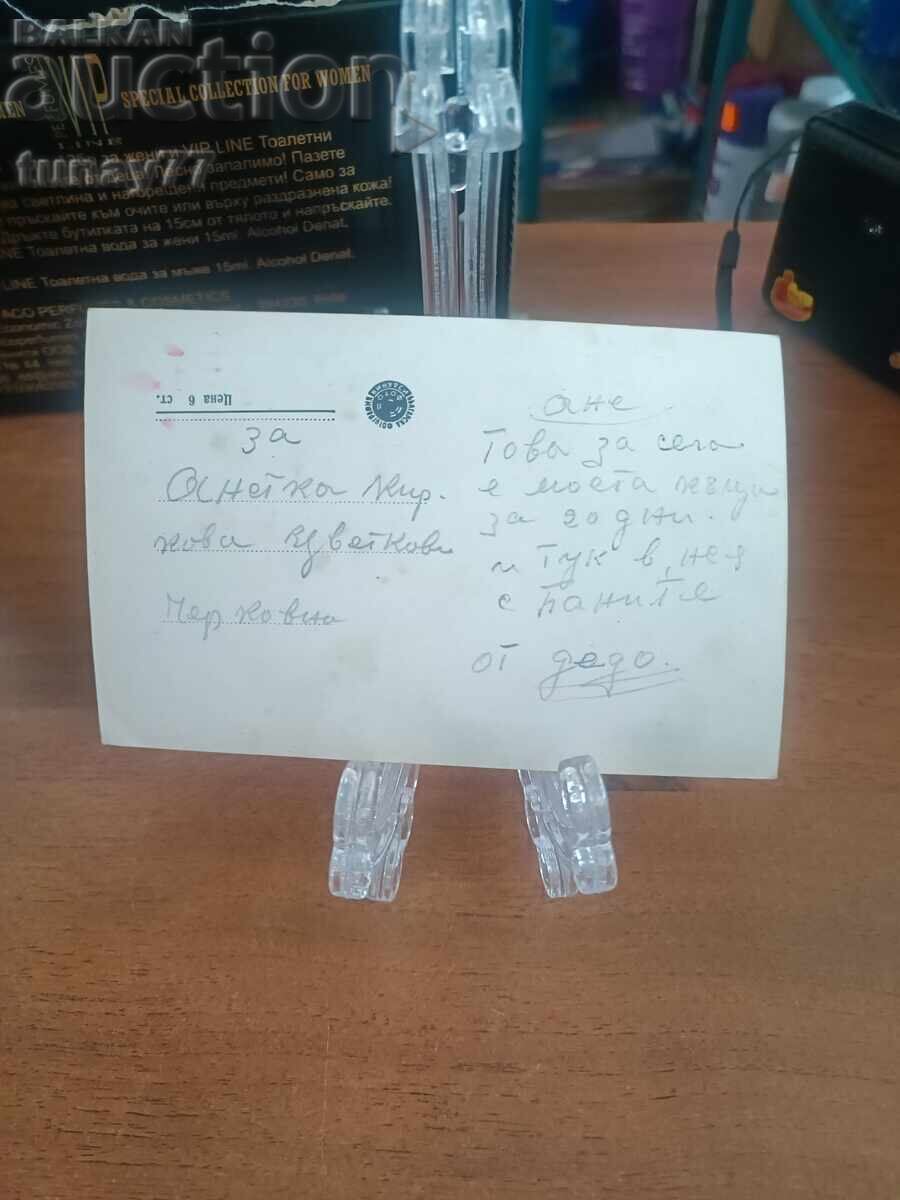 BALKAN
auction
tunay77
VIP
LINE
SPECIAL COLLECTION FOR WOMEN
VIP LINE Тоалетни
запалимо! Пазете
светлина и нагорещени предмети! Само за
към очите или върху раздразнена кожа!
бутилката на 15см от тялото и напръскайте.
Тоалетна вода за жени 15ml. Alcohol Denat.
LINE Тоалетна вода за мъже 15ml. Alcohol Denat.
Цена 6 ст.
за
Анетка Кир.
кова Цветкови
Черковна
Ане
Това за сега
е моета къща
за 20 дни.
и тук в нея
с баните
от дедо.